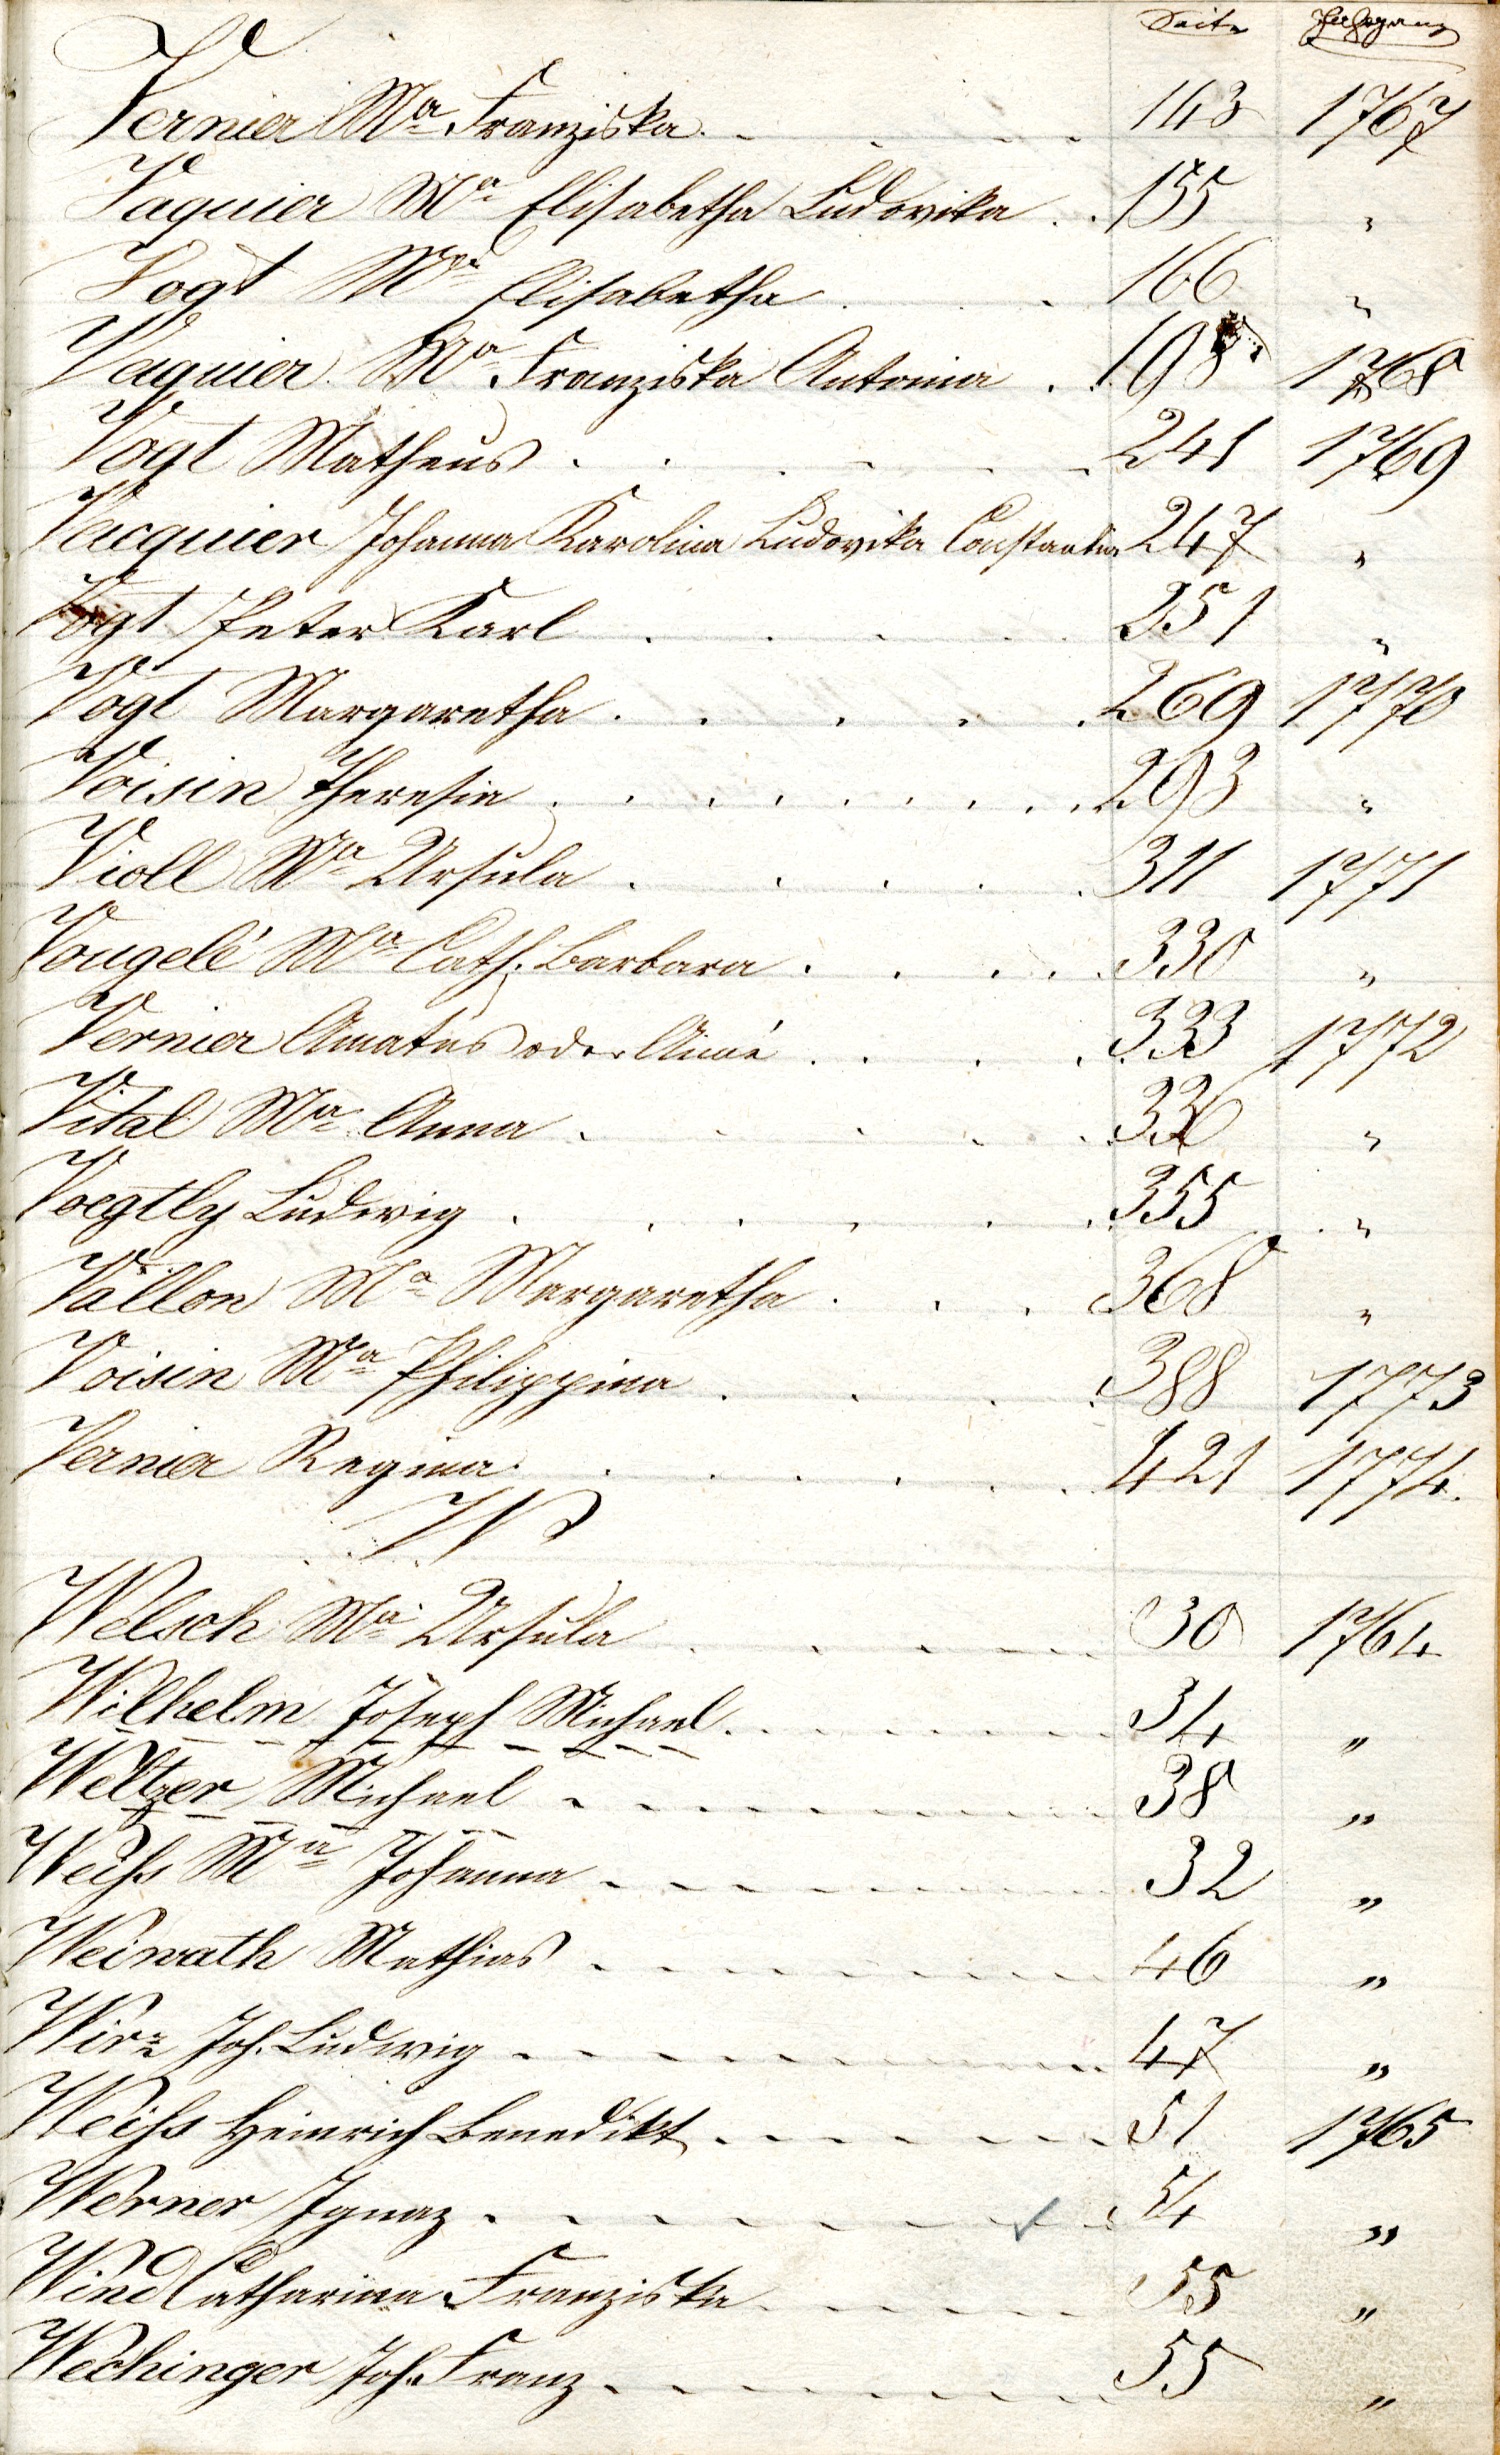 V Seite Jahrgang
Vernier Ma Franziska. 143 1767
Vaquier Ma Elisabetha Ludovika . . 155 "
Vogt Ma Elisabetha . . 166 "
Vaquier Ma Franziska Antonia . . 198 1768
Vogt Matheus . . . . . . 241 1769
Vacquier Johanna Karolina Ludovika Constantia 247 "
Vogt Peter Karl . . . . 251 "
Vogt Margaretha . . . . . 269 1770
Voisin Theresia . . . . . . . . . 293 "
Violl Ma Ursula . . . . . 311 1771
Vougelé Ma Cath. Barbara . . . . . 330 "
Vernier Amatus oder Aimé . . . . . 333 1772
Vital Ma Anna . . . . . 336 "
Voegtly Ludwig . . . . . . 355 "
Vallon Ma Margaretha . . . . 368 "
Voisin Ma Philippina . . . . 388 1773
Vernier Regina . . . . . . 421 1774.
W
Welsch Ma Ursula . . . . 30 1764
Wilhelm Joseph Michael . . . . . . . 34 "
Weltzer Michael . . . . . . . . . . 38 "
Weiss Ma Johanna . . . . . . . . . 32 "
Weinrath Mathias . . . . . . . . . 46 "
Wirz Joh. Ludwig . . . . . . . . . . 47 "
Weiss Heinrich Benedikt . . . . . . . 51 1765
Werner Ignaz . . . . . . . . . ✓ . 54 "
Wind Catharina Franziska . . . . . . 55 "
Wechinger Joh. Franz . . . . . . . . 55 "